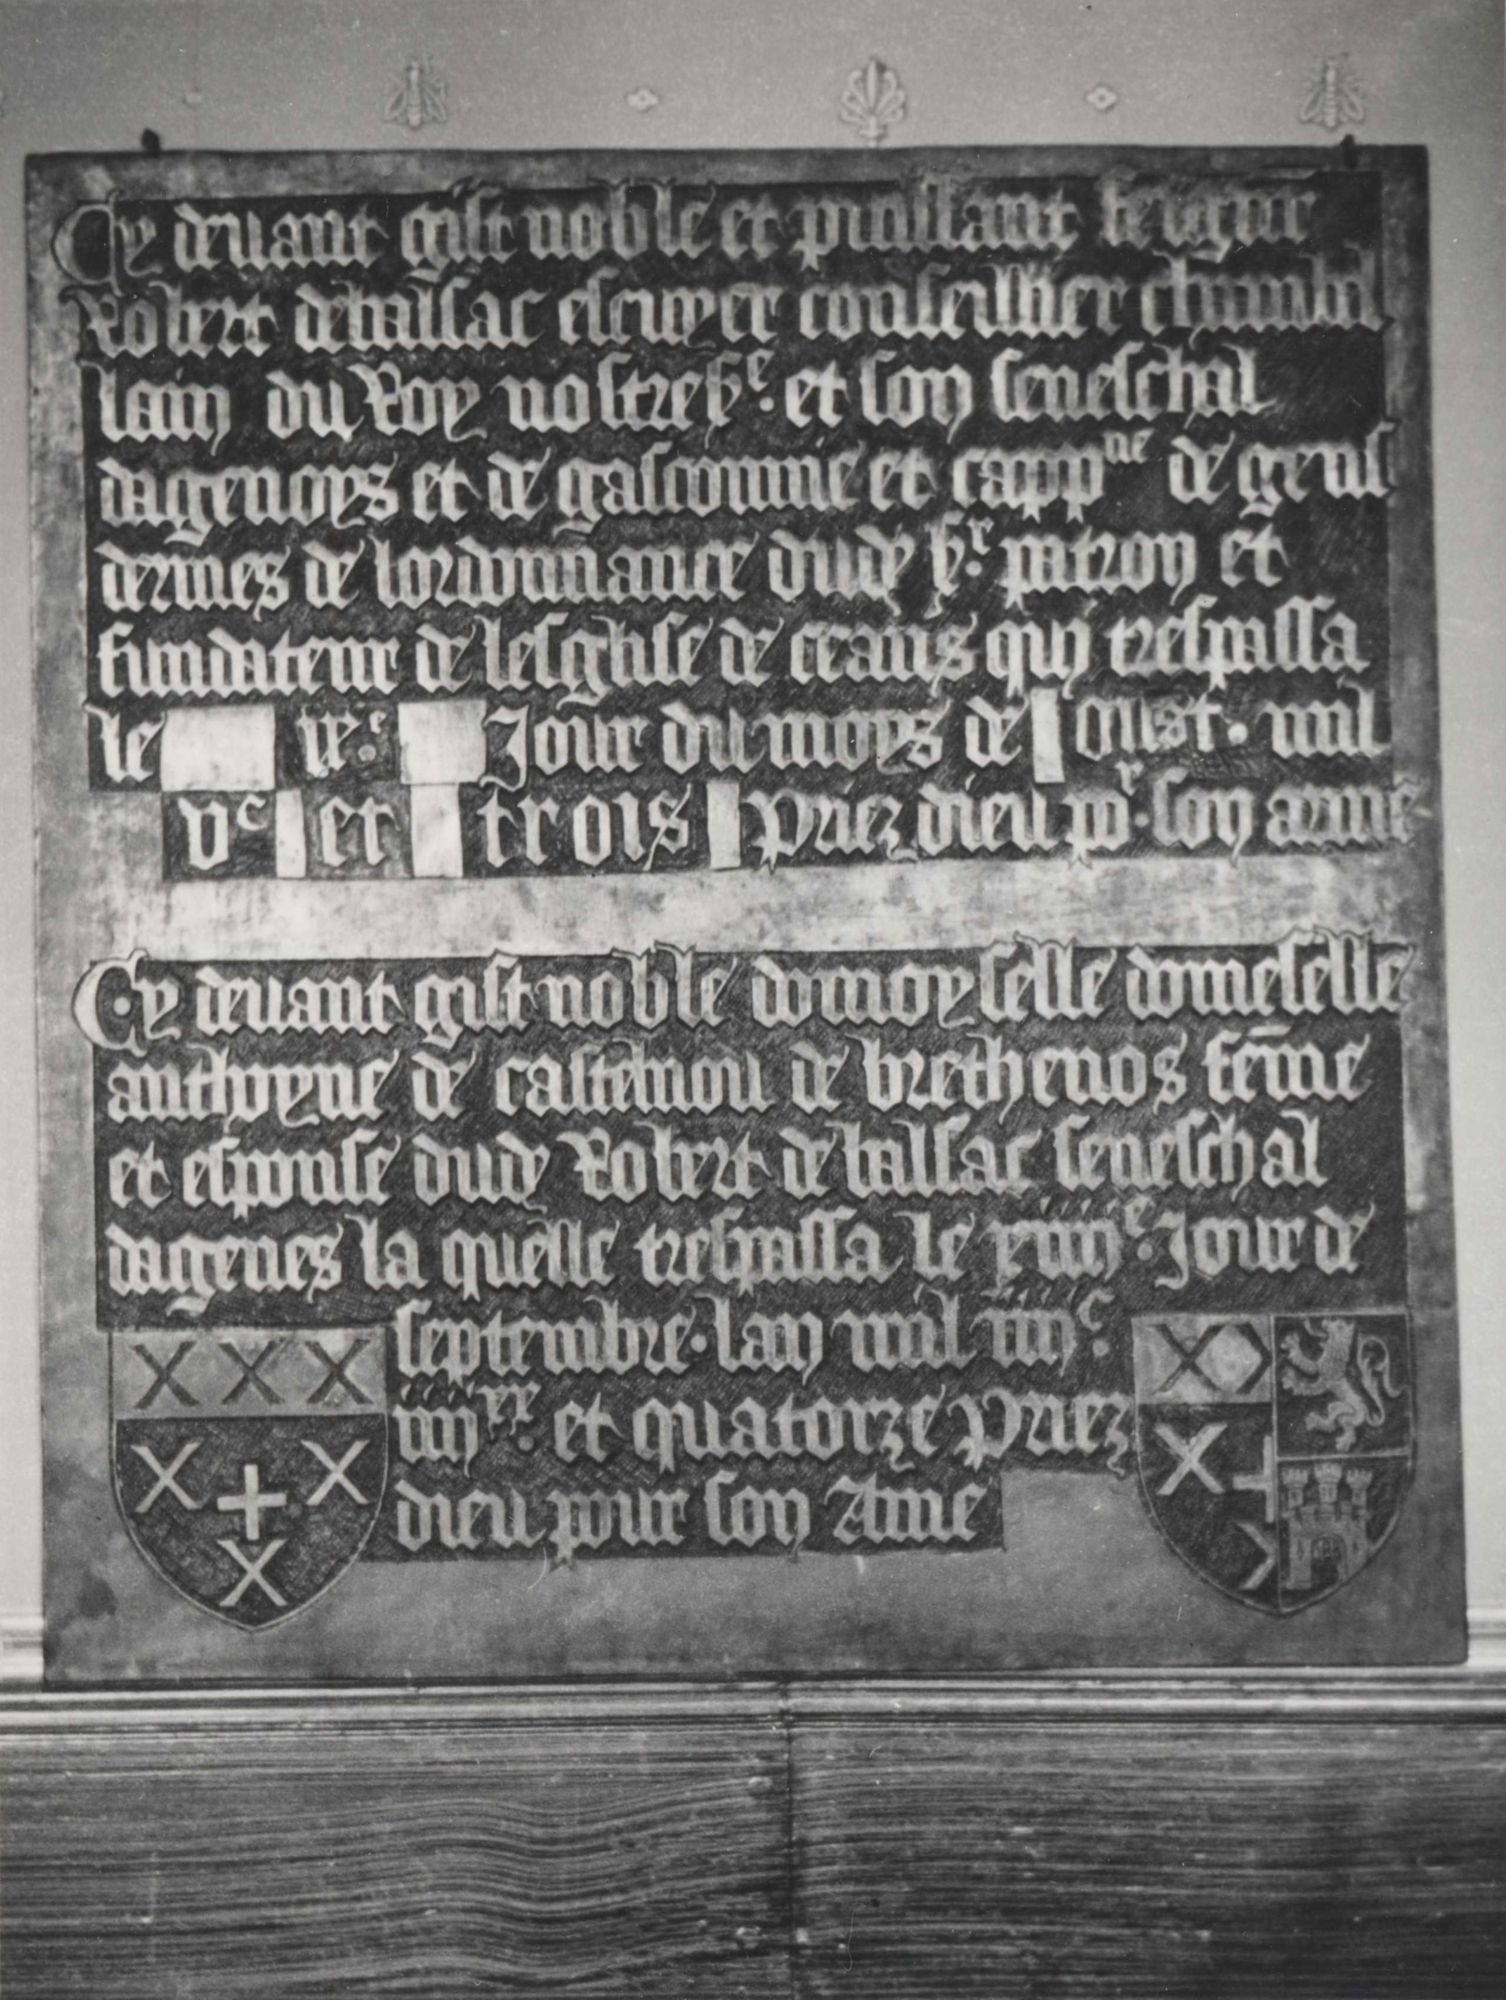 Cy devant gist noble et puissant seigūr
Robert de balsac escuyer conseillier chambel
lain du Roy nostre sʳᵉ. et son seneschal
dagenoys et de gascoinne et cappⁿᵉ de gens
dermes de lordonnance dudy sʳ. patron et
fundateur de lesglise de ceans quy trespassa
le ixᵉ. Jour du moys de Oust. mil
vᶜ et trois Priez dieu poʳ. son arme
Cy devant gist noble domoyselle domeselle
anthoyne de castelnou de brethenos fēme
et espouse dudy Robert de balsac seneschal
dagenes la quelle trespassa le xiiijᵉ. Jour de
septembre. lan mil iiijᶜ.
iiijˣˣ. et quatorze Priez
dieu pour son Ame